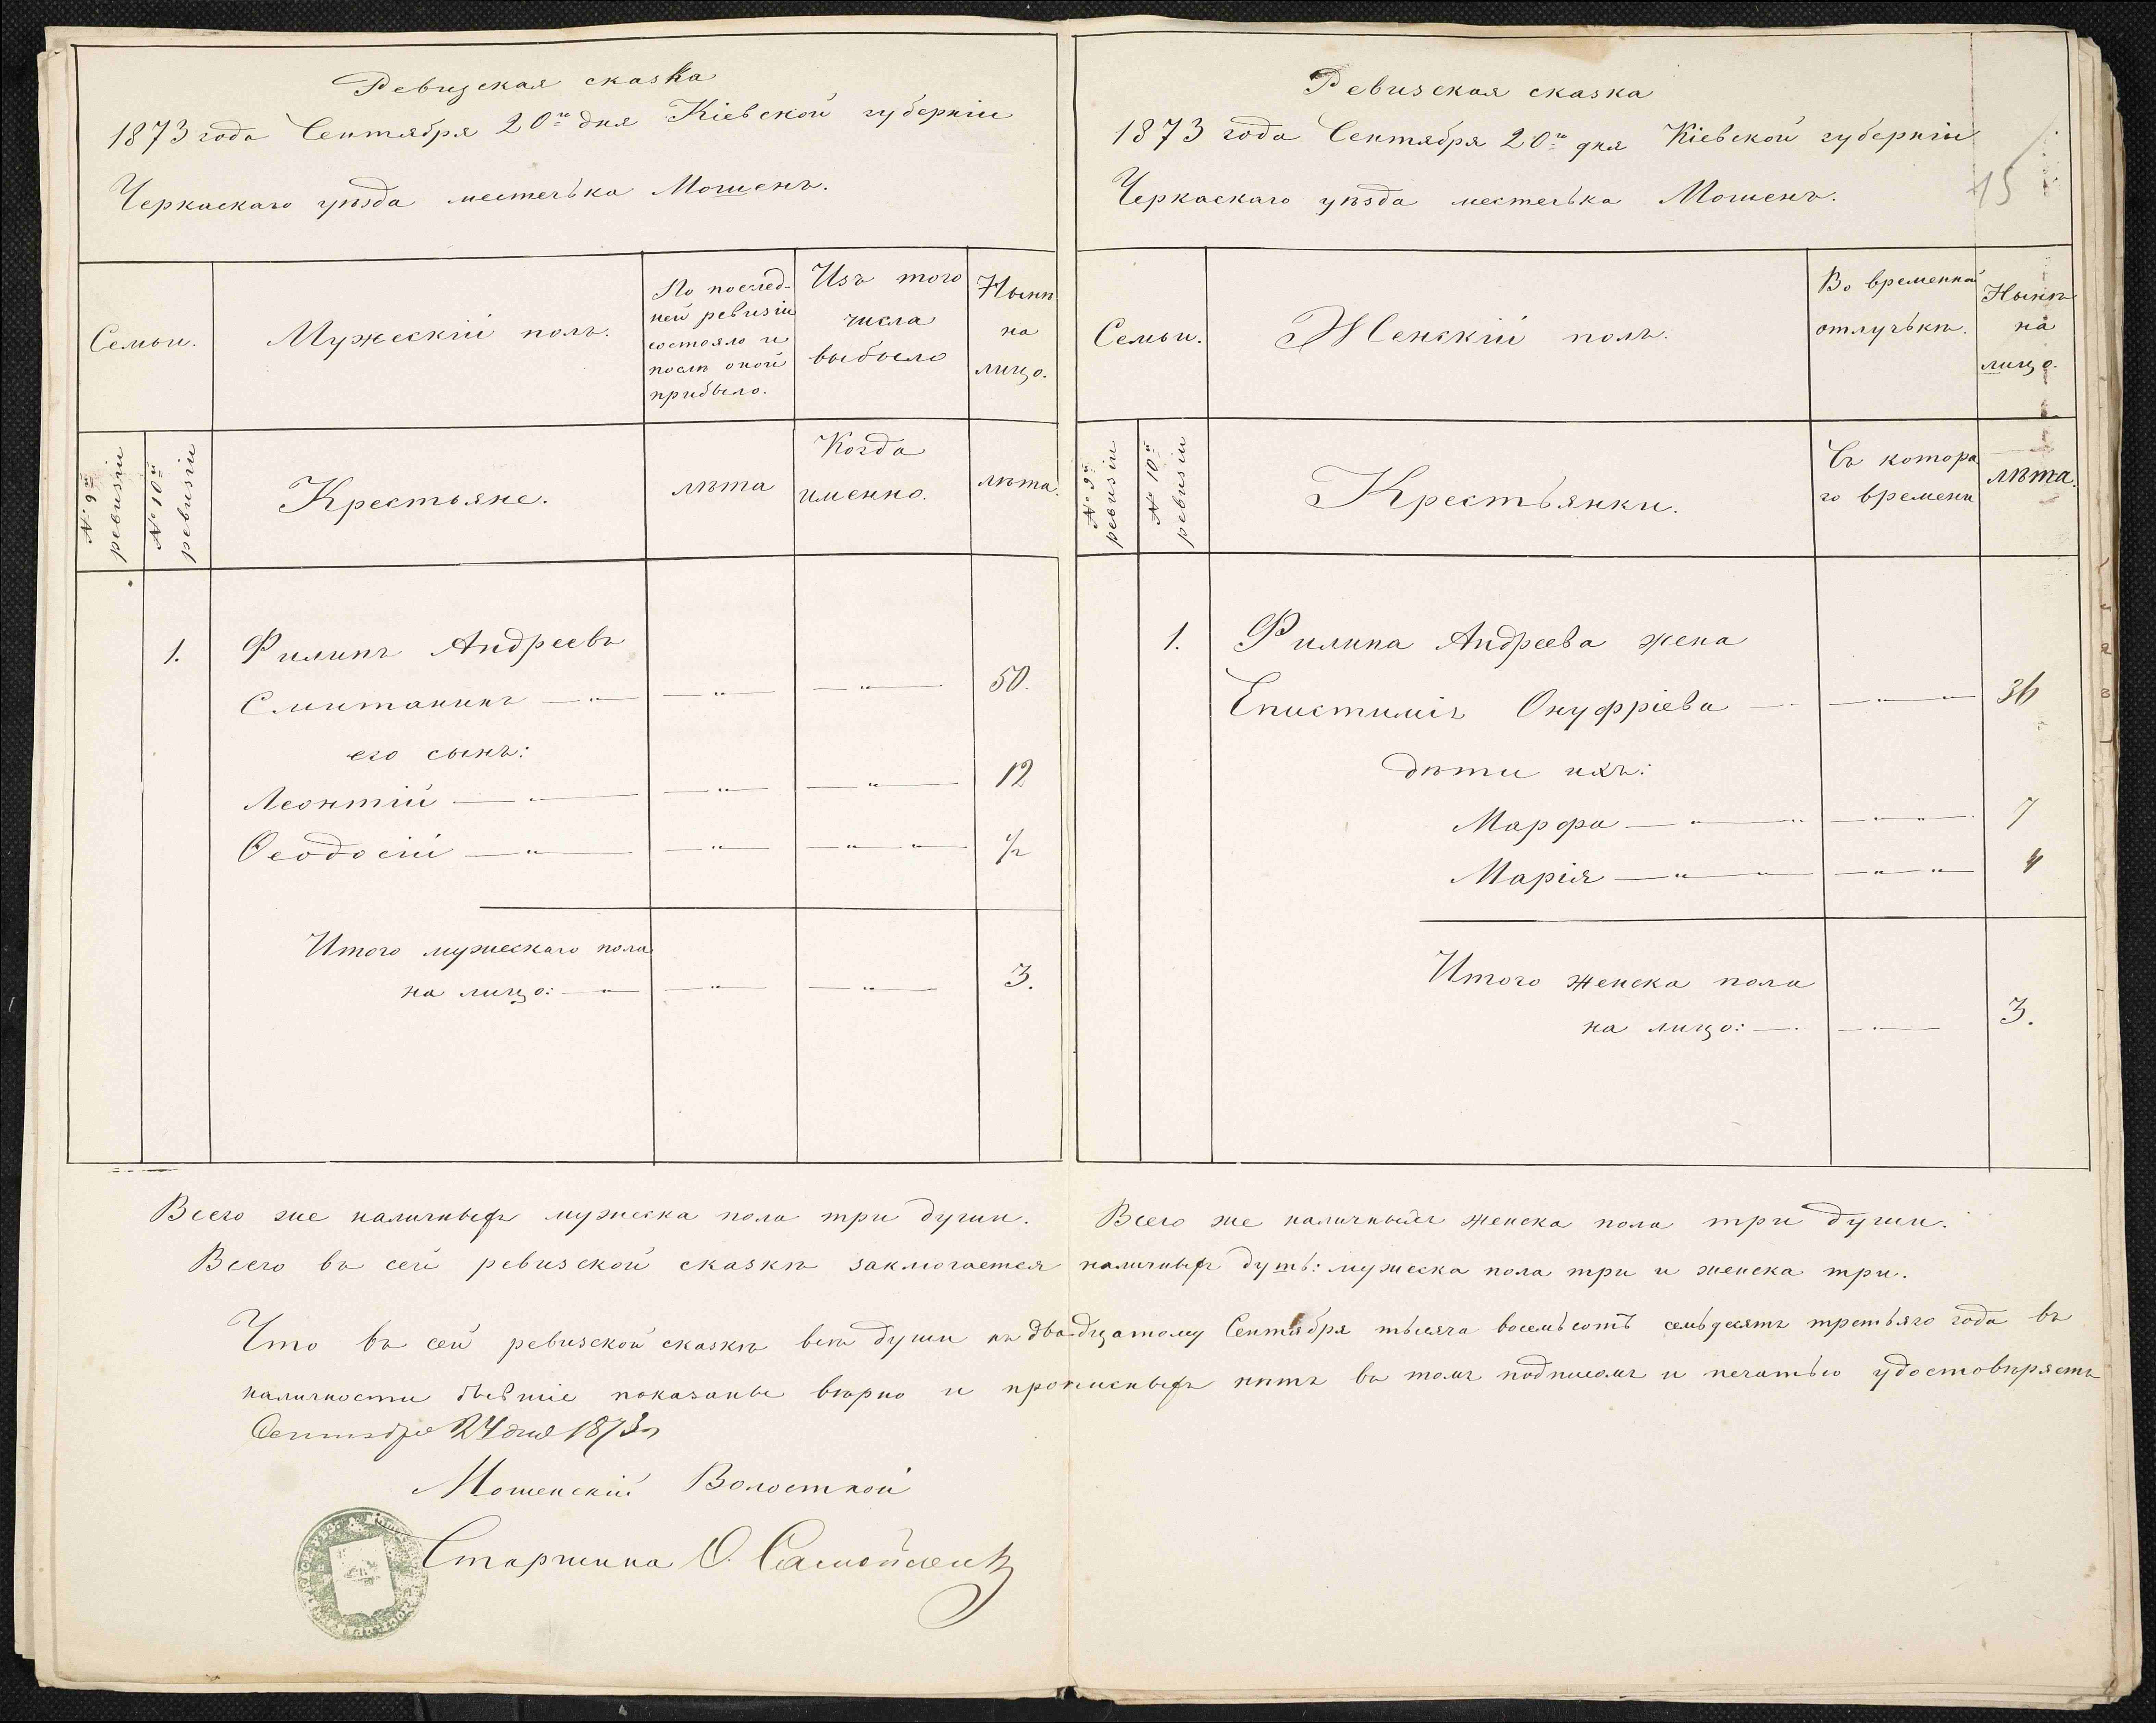 Ревизская сказка
1873 года Сентября 20го дня Кіевской губерніи
Черкаскаго уѣзда местечька Мошенъ.
Семьи.
Мужескій полъ.
По послед-
ней ревизіи
состояло и
послѣ оной
прибыло.
Изъ того
числа
выбыло
Нынѣ
на
лицо.
№ 9й
ревизіи
№ 10й
ревизіи
Крестьяне.
лѣта
Когда
именно.
лѣта.
1. Филипъ Андреевъ
Смитанинъ — " — — " — — " — 50.
его сынъ:
Леонтій — " — — " — — " — 12
Ѳеодосій — " — — " — — " — " — 1/2
Итого мужескаго пола
на лицо: — " — — " — — " — 3.
Всего же наличныхъ мужеска пола три души.
Ревизская сказка
1873 года Сентября 20го дня Кіевской губерніи
Черкаскаго уѣзда местечька Мошенъ.
15
Семьи.
Женскій полъ.
Во временной
отлучькѣ.
Нынѣ
на
лицо.
№ 9й
ревизіи
№ 10й
ревизіи
Крестьянки.
Съ котора
го времени
лѣта.
1. Филипа Андреева жена
Епистимія Онуфріева — " — — " — " — 36
дѣти ихъ:
Марфа — " — " — " — " — 7
Марія — " — " — — " — " — 4
Итого женска пола
на лицо: — " — — " — 3.
Всего же наличныхъ женска пола три души.
Всего въ сей ревизской сказкѣ заключается наличныхъ душъ: мужеска пола три и женска три.
Что въ сей ревизской сказкѣ всѣ души къ двадцатому Сентября тысяча восемьсотъ семьдесятъ третьяго года въ
наличности бывшіе показаны вѣрно и прописныхъ нѣтъ въ томъ подписомъ и печатью удостовѣряетъ
Сентября 24 дня 1873 г
Мошенскій Волостной
Старшина О. Самойленк